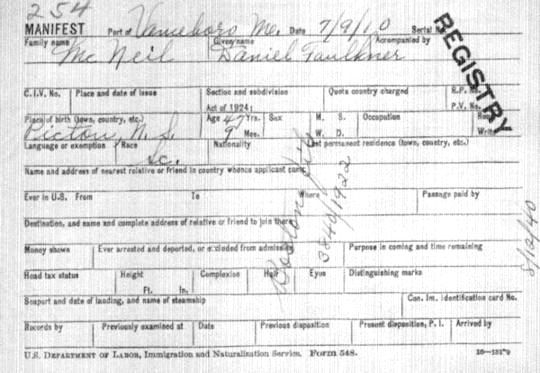 254
MANIFEST Port of Vanceboro Me. Date 7/9/10 Serial No.
REGISTRY
Family name Given name Accompanied by
McNeil Daniel Faulkner
C.I.V. No. Place and date of issue Section and subdivision Quota country charged R.P.
Act of 1924: P.V. No.
Place of birth (town, country, etc.) Age 47 Yrs. Sex M. S. Occupation Read
Pictou, N. S. 9 Mos. W. D. Write
Language or exemption Race Nationality Last permanent residence (town, country, etc.)
Sc.
Name and address of nearest relative or friend in country whence applicant came
Ever in U.S. From To Where Passage paid by
Destination, and name and complete address of relative or friend to join there
Money shown Ever arrested and deported, or excluded from admission Purpose in coming and time remaining
Head tax status Height Complexion Hair Eyes Distinguishing marks
Ft. In.
Seaport and date of landing, and name of steamship Can. Im. Identification card No.
Records by Previously examined at Date Previous disposition Present disposition, P. I. Arrived by
U.S. DEPARTMENT OF LABOR, Immigration and Naturalization Service. Form 548.
Boston
3840/1922
8/12/40